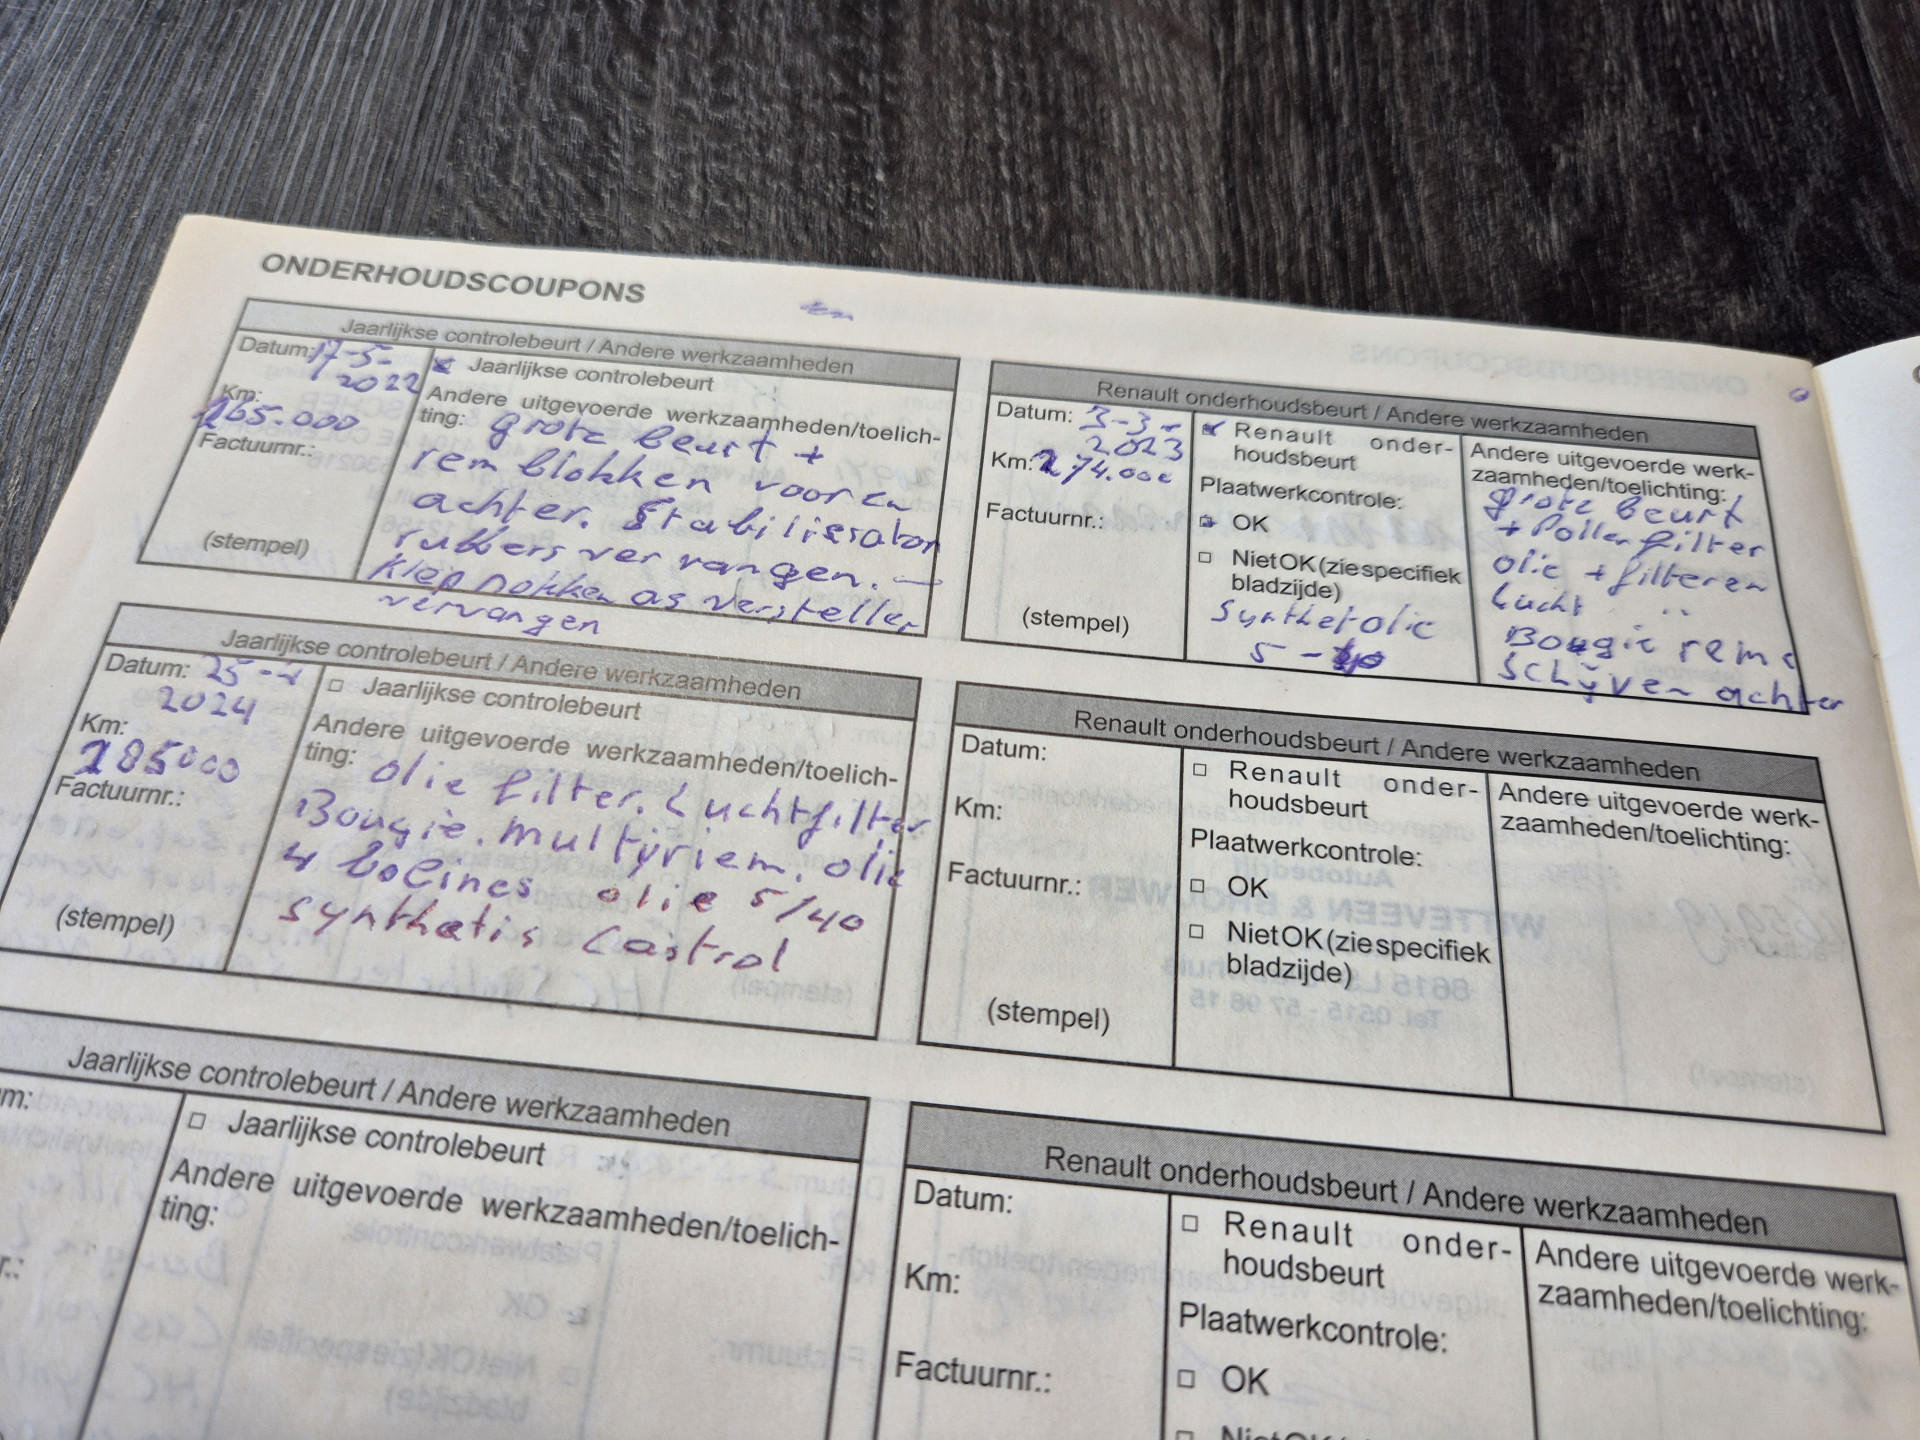 ONDERHOUDSCOUPONS
Jaarlijkse controlebeurt / Andere werkzaamheden
Datum: 17-5-
2022
Km:
265.000
Factuurnr.:
(stempel)
Jaarlijkse controlebeurt
Andere uitgevoerde werkzaamheden/toelich-
ting: grote beurt +
rem blokken voor en
achter. Stabilisator
rubbers ver vangen.
Klep nokken as versteller
vervangen
Renault onderhoudsbeurt / Andere werkzaamheden
Datum: 3-3-
2023
Km: 274.000
Factuurnr.:
(stempel)
Renault onder-
houdsbeurt
Plaatwerkcontrole:
OK
Niet OK (zie specifiek
bladzijde)
Synthet olie
5 -
Andere uitgevoerde werk-
zaamheden/toelichting:
grote beurt
+ Pollen filter
olie + filteren
Lucht "
Bougie rem
schijven achter
Jaarlijkse controlebeurt / Andere werkzaamheden
Datum: 25-
2024
Km:
285000
Factuurnr.:
(stempel)
Jaarlijkse controlebeurt
Andere uitgevoerde werkzaamheden/toelich-
ting: olie filter. Luchtfilter
Bougie. multyriem. olie
4 boeines olie 5/40
synthetis Castrol
Renault onderhoudsbeurt / Andere werkzaamheden
Datum:
Km:
Factuurnr.:
(stempel)
Renault onder-
houdsbeurt
Plaatwerkcontrole:
OK
Niet OK (zie specifiek
bladzijde)
Andere uitgevoerde werk-
zaamheden/toelichting:
Jaarlijkse controlebeurt / Andere werkzaamheden
m:
r.:
Jaarlijkse controlebeurt
Andere uitgevoerde werkzaamheden/toelich-
ting:
Renault onderhoudsbeurt / Andere werkzaamheden
Datum:
Km:
Factuurnr.:
Renault onder-
houdsbeurt
Plaatwerkcontrole:
OK
Andere uitgevoerde werk-
zaamheden/toelichting: